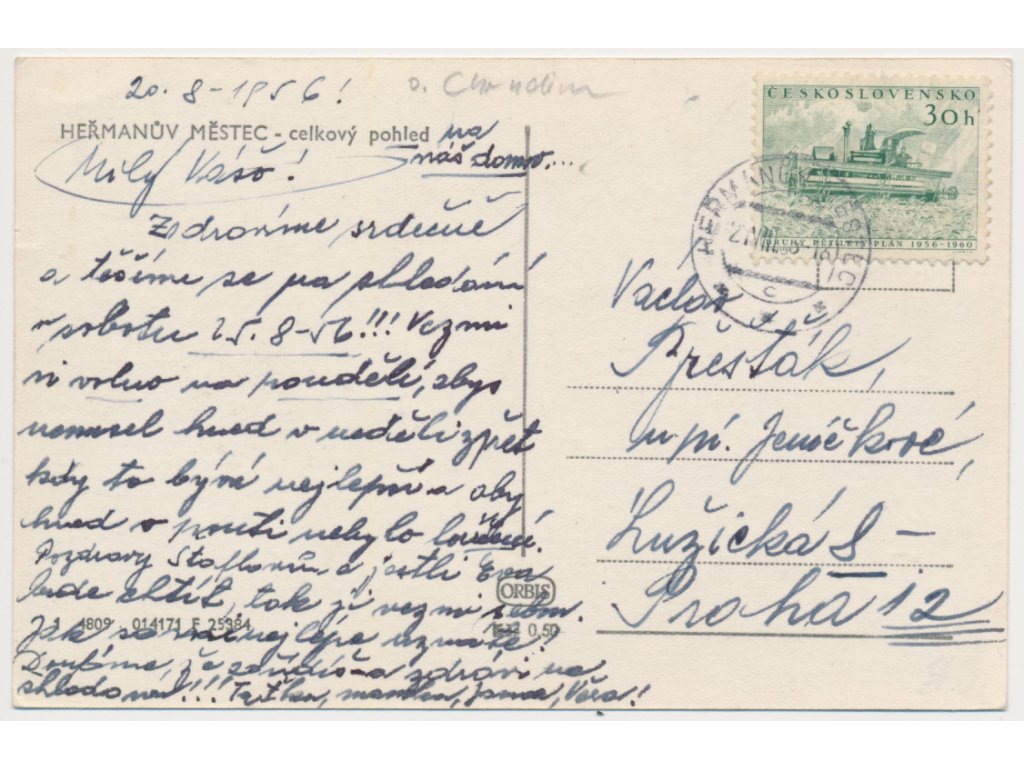 20. 8 - 1956!
o. Chrudim
HEŘMANŮV MĚSTEC - celkový pohled na
náš domov....
Milý Vášo!
Zdravíme srdečně
a těšíme se na shledání
v sobotu 25. 8 - 56!!! Vezmi
si volno na pondělí, abys
nemusel hned v neděli zpět
kdy to bývá nejlepší a aby
hned o pouti nebylo loučení.
Pozdravy Staflovům a jestli Eva
bude chtít, tak ji vezmi sebou.
Jak sami nejlépe uznáte!
Doufáme, že seš a zdráv na
shledanou!!! Taťka, mamka, Jana, Věra!
1 4809 014171 F 25384
ORBIS
Kčs 0,50
ČESKOSLOVENSKO
30 h
DRUHÝ PĚTILETÝ PLÁN 1956-1960
HEŘMANŮV MĚSTEC
C
Václav
Přešťák,
u pí. Jeníčkové,
Lužická 8 -
Praha 12